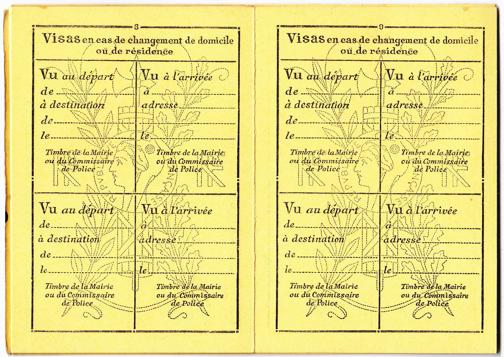 8
Visas en cas de changement de domicile
ou de résidence
Vu au départ
de
à destination
de
le
Timbre de la Mairie
ou du Commissaire
de Police
Vu à l'arrivée
à
adresse
le
Timbre de la Mairie
ou du Commissaire
de Police
Vu au départ
de
à destination
de
le
Timbre de la Mairie
ou du Commissaire
de Police
Vu à l'arrivée
à
adresse
le
Timbre de la Mairie
ou du Commissaire
de Police
9
Visas en cas de changement de domicile
ou de résidence
Vu au départ
de
à destination
de
le
Timbre de la Mairie
ou du Commissaire
de Police
Vu à l'arrivée
à
adresse
le
Timbre de la Mairie
ou du Commissaire
de Police
Vu au départ
de
à destination
de
le
Timbre de la Mairie
ou du Commissaire
de Police
Vu à l'arrivée
à
adresse
le
Timbre de la Mairie
ou du Commissaire
de Police